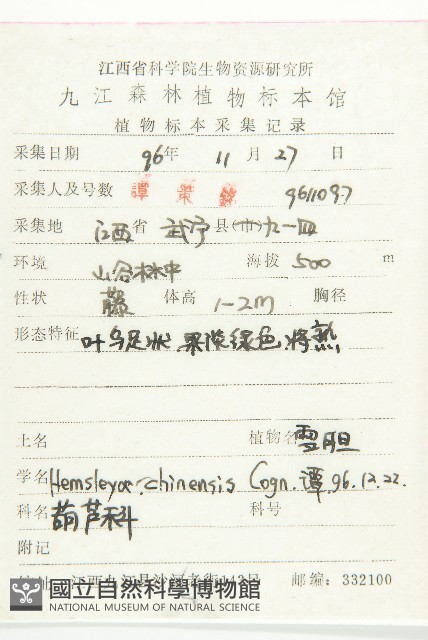 江西省科学院生物资源研究所
九江森林植物标本馆
植物标本采集记录
采集日期 96年 11月 27日
采集人及号数 譚策銘 9611097
采集地 江西省 武宁县(市)九一四
环境 山谷林中 海拔 500 m
性状 藤 体高 1-2m 胸径
形态特征 叶鸟足状,果淡绿色,将熟
土名 植物名 雪胆
学名 Hemsleya chinensis Cogn. 譚.96.12.22.
科名 葫芦科 科号
附记
江西九江县沙河老街143号 邮编:332100
國立自然科學博物館
NATIONAL MUSEUM OF NATURAL SCIENCE